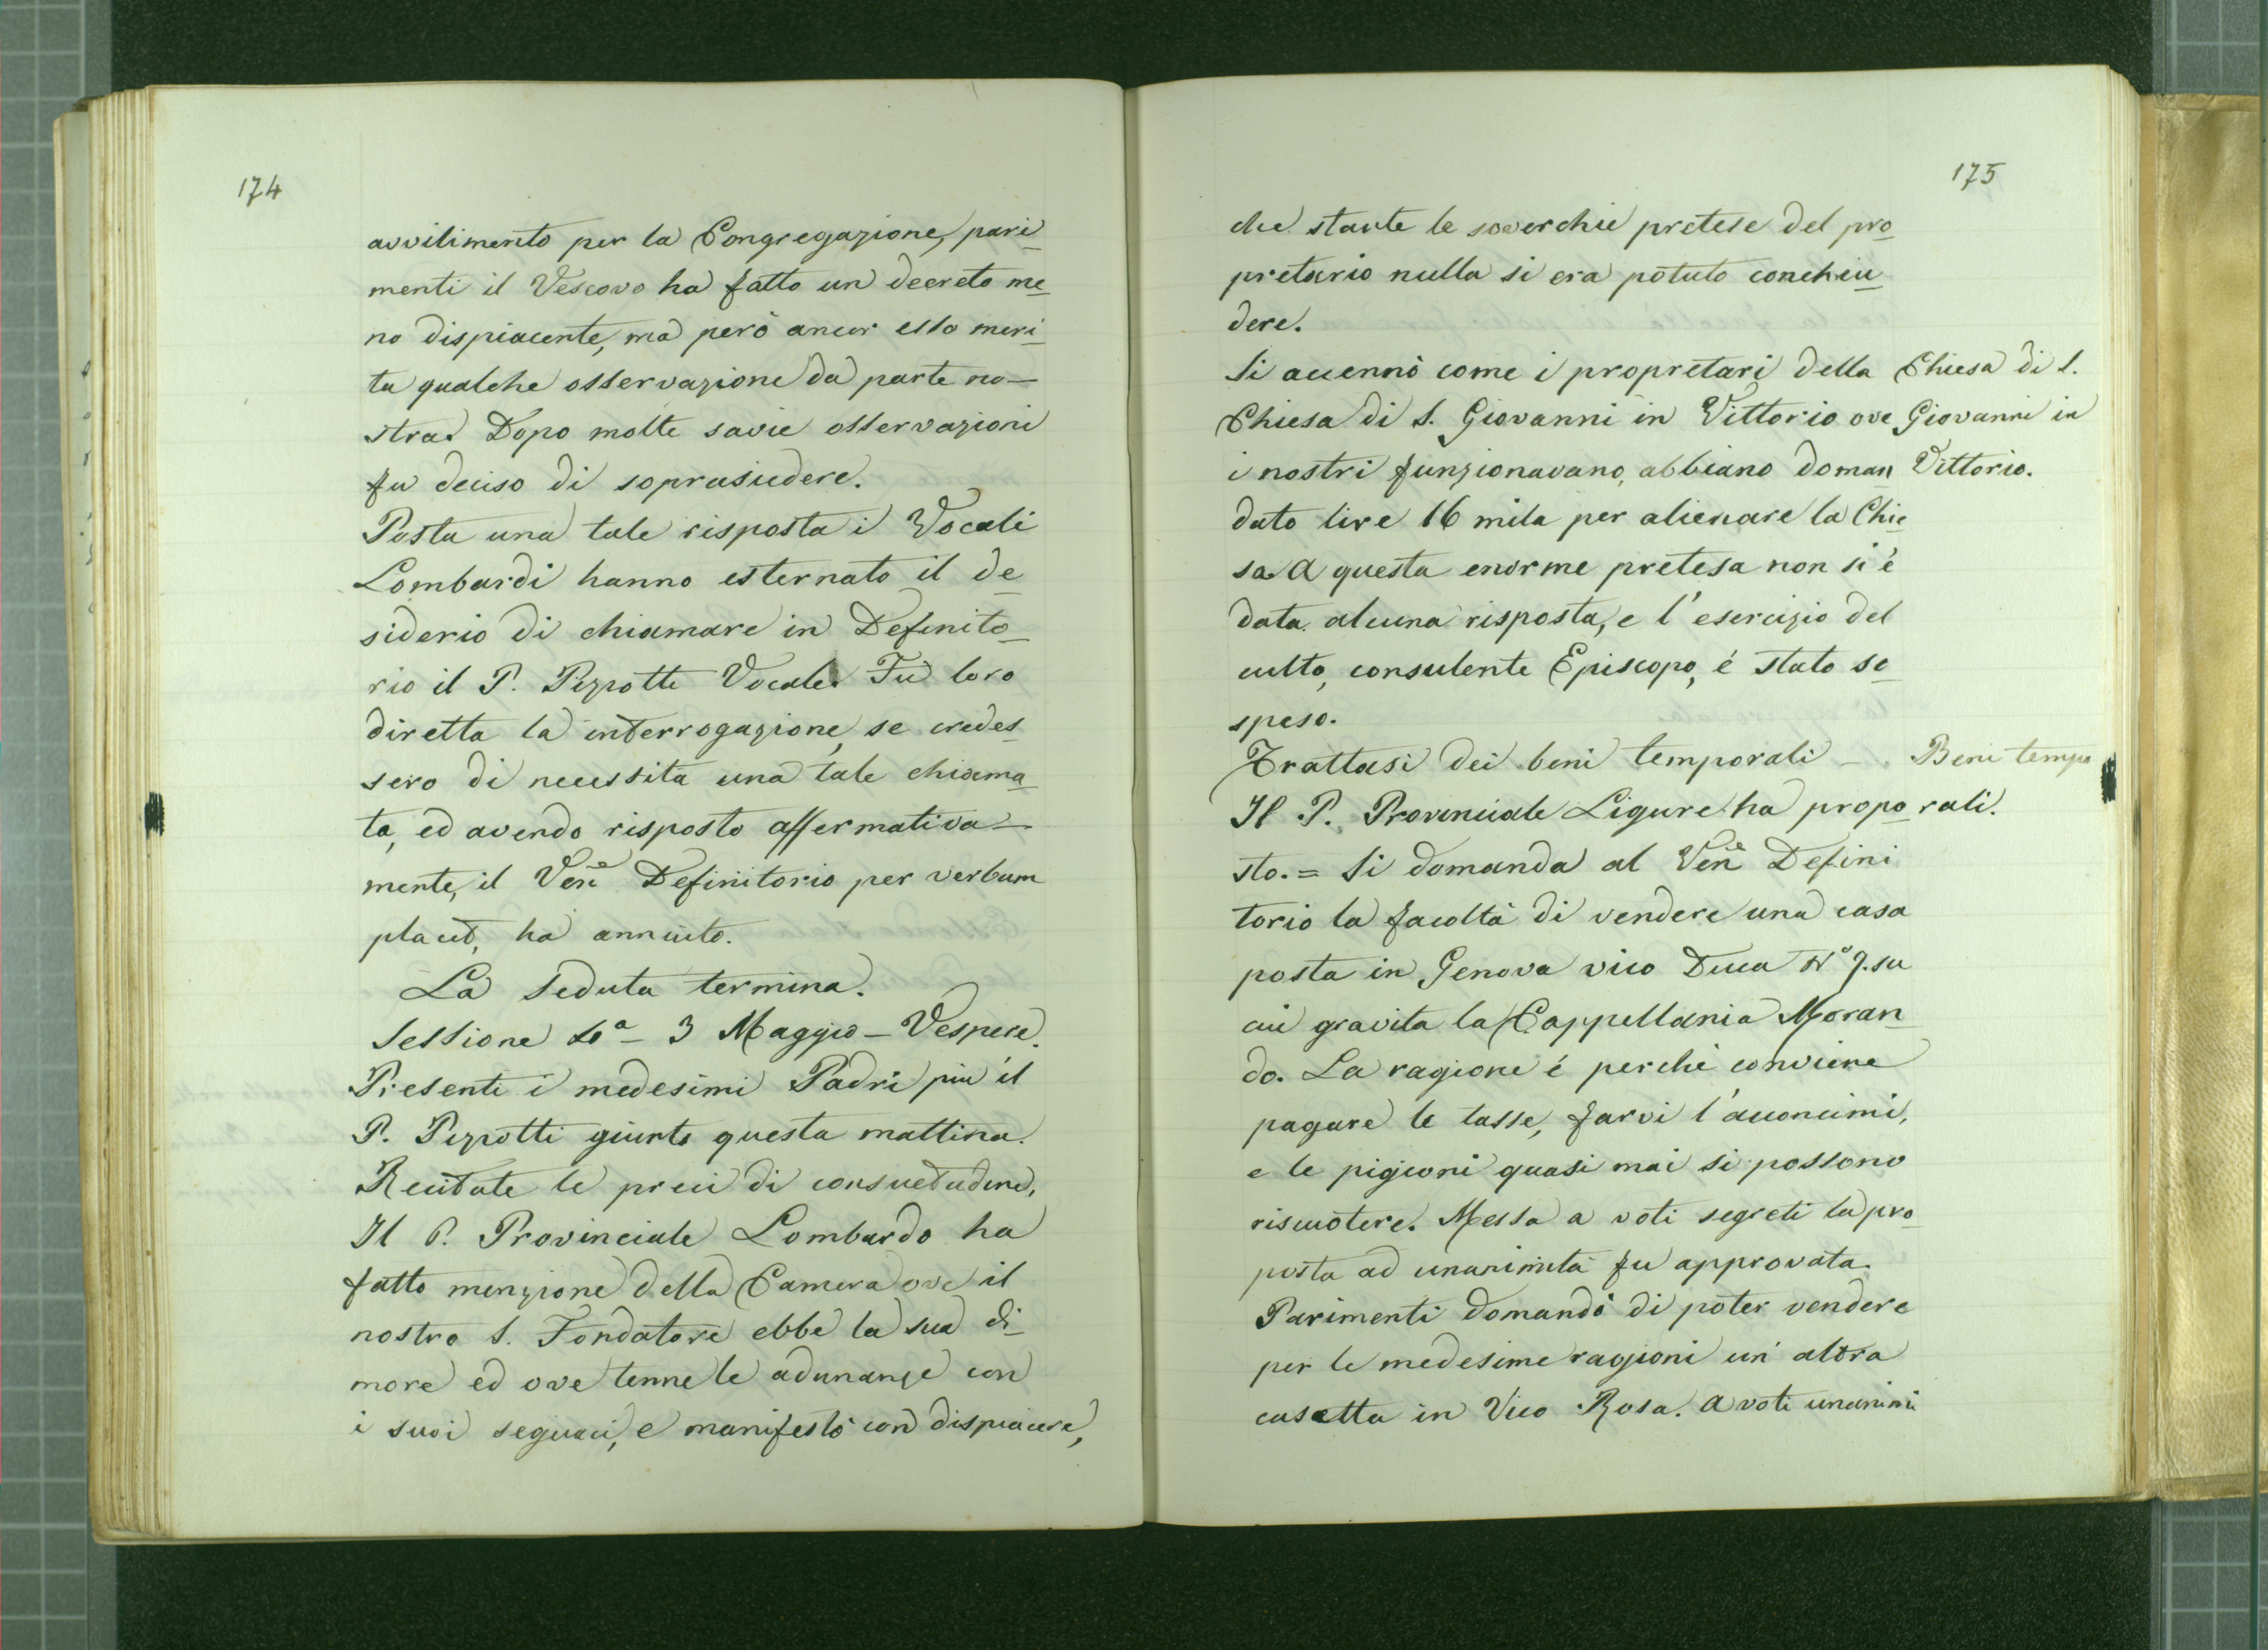 174
avvilimento per la Congregazione, pari
menti il Vescovo ha fatto un decreto me
no dispiacente, ma però ancor esso meri
ta qualche osservazione da parte no-
stra. Dopo molte savie osservazioni
fu deciso di soprasiedere.
Posta una tale risposta i Vocali
Lombardi hanno esternato il de
siderio di chiamare in Definito
rio il P. Pizzotti Vocale. Fù loro
diretta la interrogazione, se credes
sero di necessita una tale chiama
ta, ed avendo risposto affermativa-
mente, il Vene Definitorio per verbum
placet, ha annuito.
La Seduta termina.
Sessione 10a - 3 Maggio - Vespere.
Presenti i medesimi Padri più il
P. Pizzotti giunto questa mattina.
Recitate le preci di consuetudine,
Il P. Provinciale Lombardo ha
fatto menzione della Camera ove il
nostro S. Fondatore ebbe la sua di
more ed ove tenne le adunanze con
i suoi seguaci, e manifestò con dispiacere,
175
che stante le soverchie pretese del pro
pretario nulla si era potuto conchiu
dere.
Si accennò come i propretari della
Chiesa di S. Giovanni in Vittorio ove
i nostri funzionavano, abbiano doman
dato lire 16 mila per alienare la Chie
sa. A questa enorme pretesa non si è
data alcuna risposta, e l'esercizio del
culto, consulente Episcopo, é stato so
speso.
Chiesa di S.
Giovanni in
Vittorio.
Trattasi dei beni temporali -
Il P. Provinciale Ligure ha propo
sto. = Si domanda al Vene Defini
torio la facoltà di vendere una casa
posta in Genova vico Duca No 7. su
cui gravita la Cappellania Moran
do. La ragione é perchè conviene
pagare le tasse, farvi l'acconcimi,
e le pigioni quasi mai si possono
riscuotere. Messa a voti segreti la pro
posta ad unanimità fu approvata.
Parimenti domandò di poter vendere
per le medesime ragioni un' altra
casetta in Vico Rosa. A voti unanimi
Beni tempo
rali.